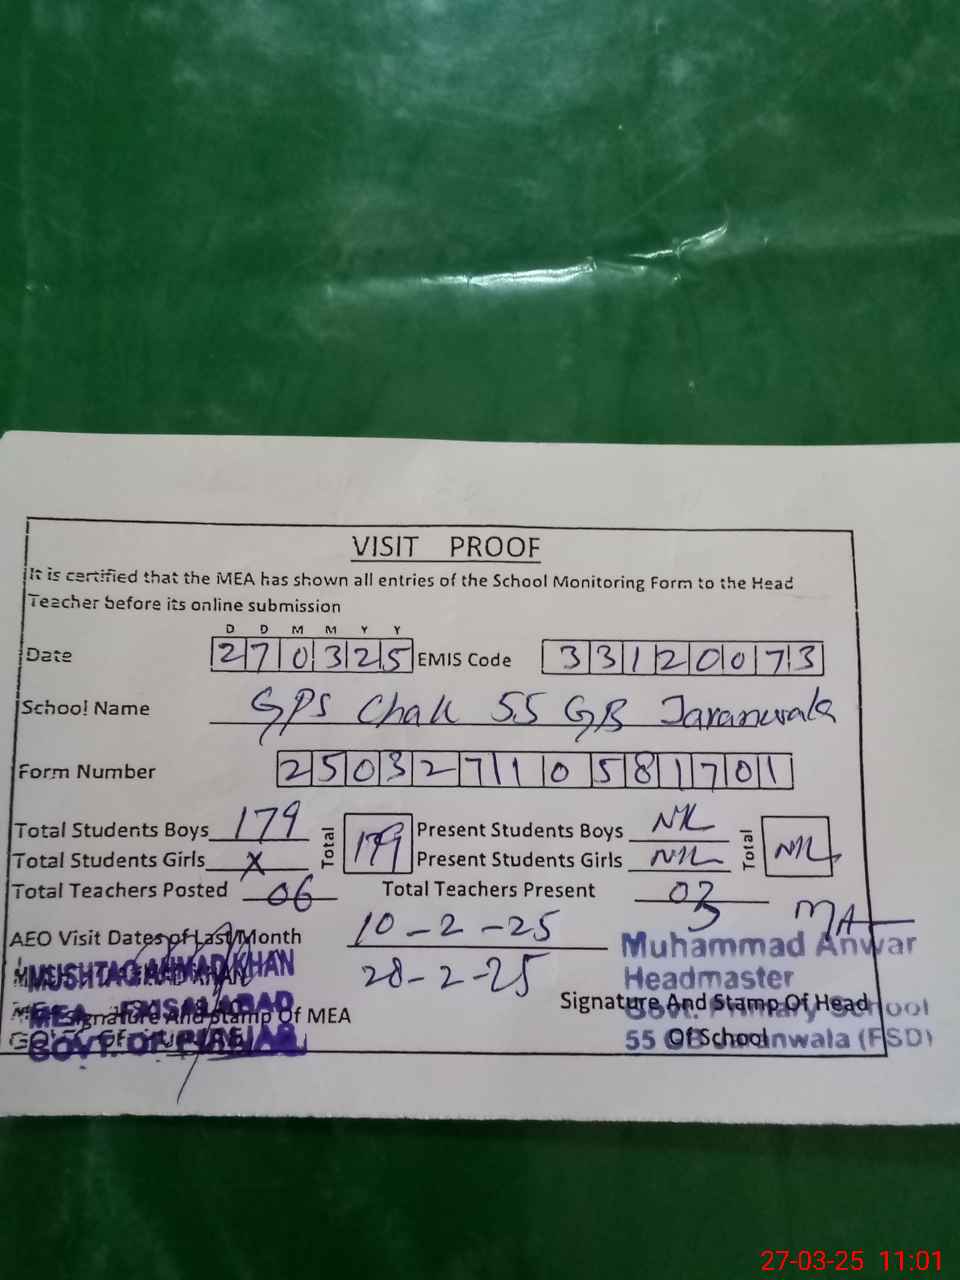 VISIT PROOF
It is certified that the MEA has shown all entries of the School Monitoring Form to the Head
Teacher before its online submission
D D M M Y Y
Date 270325 EMIS Code 33120073
School Name GPS Chak 55 GB Jaranwala
Form Number 250327110581701
Total Students Boys 179 Total 179 Present Students Boys NIL Total NIL
Total Students Girls X Present Students Girls NIL
Total Teachers Posted 06 Total Teachers Present 03
AEO Visit Dates of Last Month 10-2-25
28-2-25
MUSHTAQ AHMAD KHAN
MEA FAISALABAD
GOVT. OF PUNJAB
Signature And Stamp Of MEA
Muhammad Anwar
Headmaster
Govt. Primary School
55 GB Jaranwala (FSD)
Signature And Stamp Of Head
Of School
27-03-25 11:01